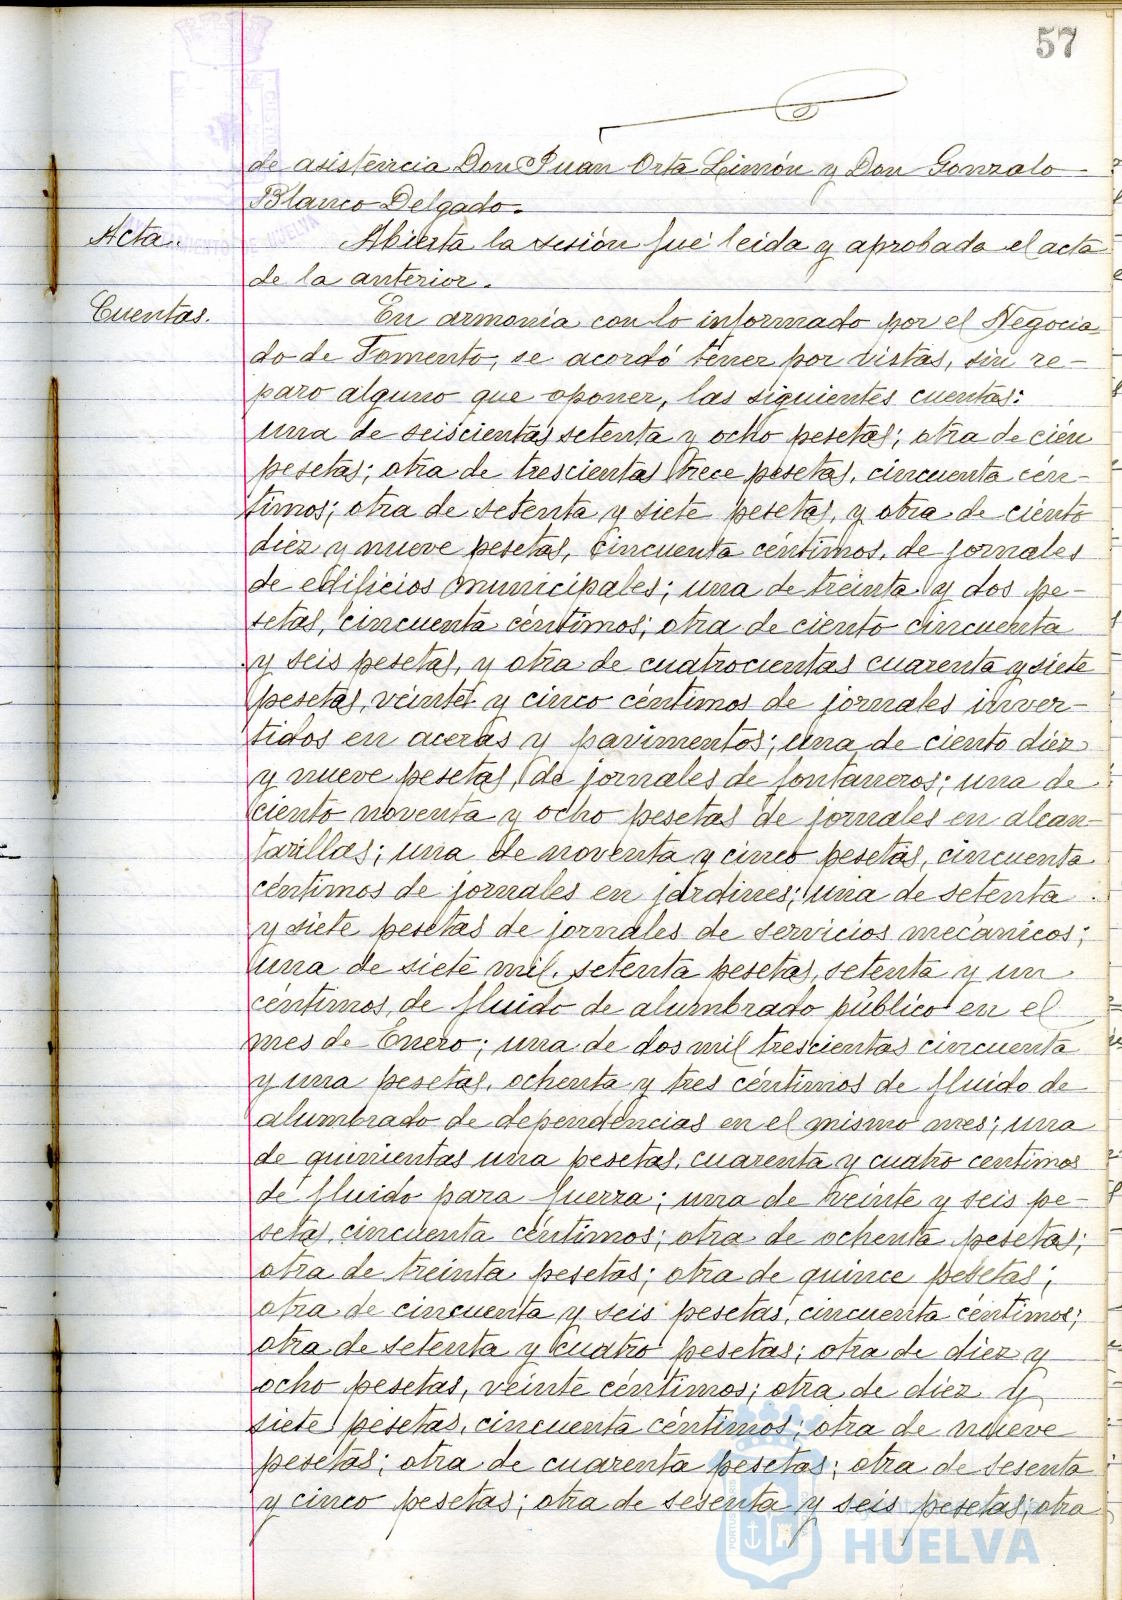 57
de asistencia Don Juan Orta Limón y Don Gonzalo
Blanco Delgado.
Acta.
Abierta la sesión fué leida y aprobada el acta
de la anterior.
Cuentas.
En armonía con lo informado por el Negocia
do de Fomento, se acordó tener por vistas, sin re-
paro alguno que oponer, las siguientes cuentas:
una de seiscientas setenta y ocho pesetas; otra de cien
pesetas; otra de trescientas trece pesetas, cincuenta cén-
timos; otra de setenta y siete pesetas, y otra de ciento
diez y nueve pesetas, cincuenta céntimos, de jornales
de edificios municipales; una de treinta y dos pe-
setas, cincuenta céntimos; otra de ciento cincuenta
y seis pesetas, y otra de cuatrocientas cuarenta y siete
pesetas, veinte y cinco céntimos de jornales inver-
tidos en aceras y pavimentos; una de ciento diez
y nueve pesetas, de jornales de fontaneros; una de
ciento noventa y ocho pesetas de jornales en alcan-
tarillas; una de noventa y cinco pesetas, cincuenta
céntimos de jornales en jardines; una de setenta
y siete pesetas de jornales de servicios mecánicos;
una de siete mil, setenta pesetas, setenta y un
céntimos, de fluido de alumbrado público en el
mes de Enero; una de dos mil trescientas cincuenta
y una pesetas, ochenta y tres céntimos de fluido de
alumbrado de dependencias en el mismo mes; una
de quinientas una pesetas, cuarenta y cuatro centimos
de fluido para fuerza; una de veinte y seis pe-
setas, cincuenta céntimos; otra de ochenta pesetas;
otra de treinta pesetas; otra de quince pesetas;
otra de cincuenta y seis pesetas, cincuenta céntimos;
otra de setenta y cuatro pesetas; otra de diez y
ocho pesetas, veinte céntimos; otra de diez y
siete pesetas, cincuenta céntimos; otra de nueve
pesetas; otra de cuarenta pesetas; otra de sesenta
y cinco pesetas; otra de sesenta y seis pesetas; otra
HUELVA